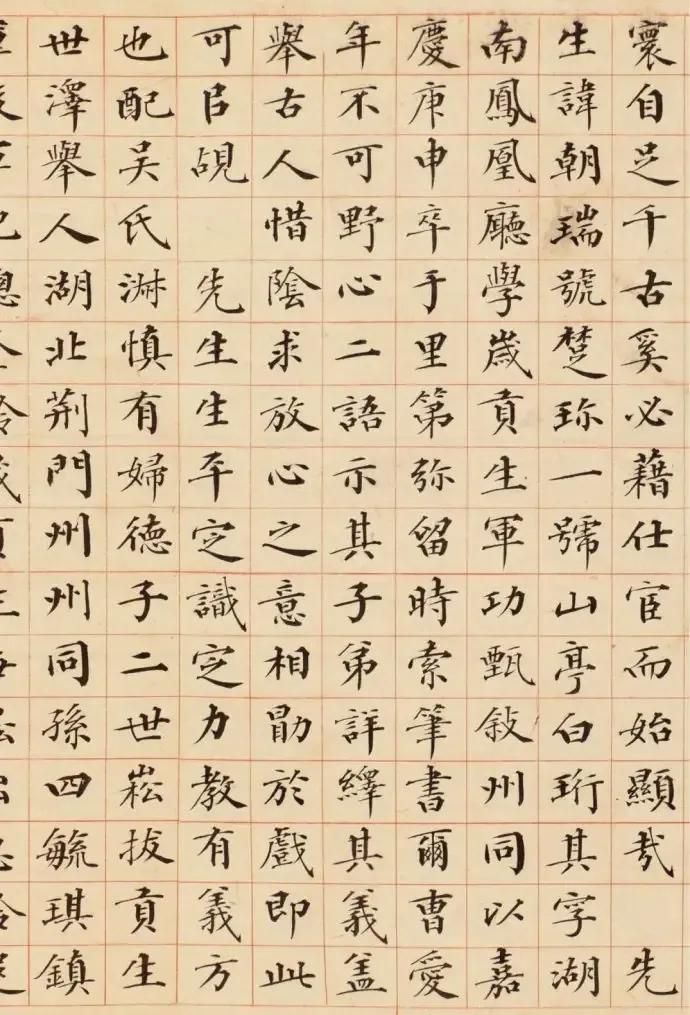 寰自足千古奚必藉仕宦而始顯哉 先
生諱朝瑞號楚珎一號山亭白珩其字湖
南鳳凰廳學歲貢生軍功甄敍州同以嘉
慶庚申卒于里第弥留時索筆書爾曹愛
年不可野心二語示其子弟詳繹其義盖
舉古人惜陰求放心之意相勖於戲即此
可㠯覘 先生生平定識定力教有義方
也配吳氏淑慎有婦德子二世崧拔貢生
世澤舉人湖北荊門州州同孫四毓琪鎮